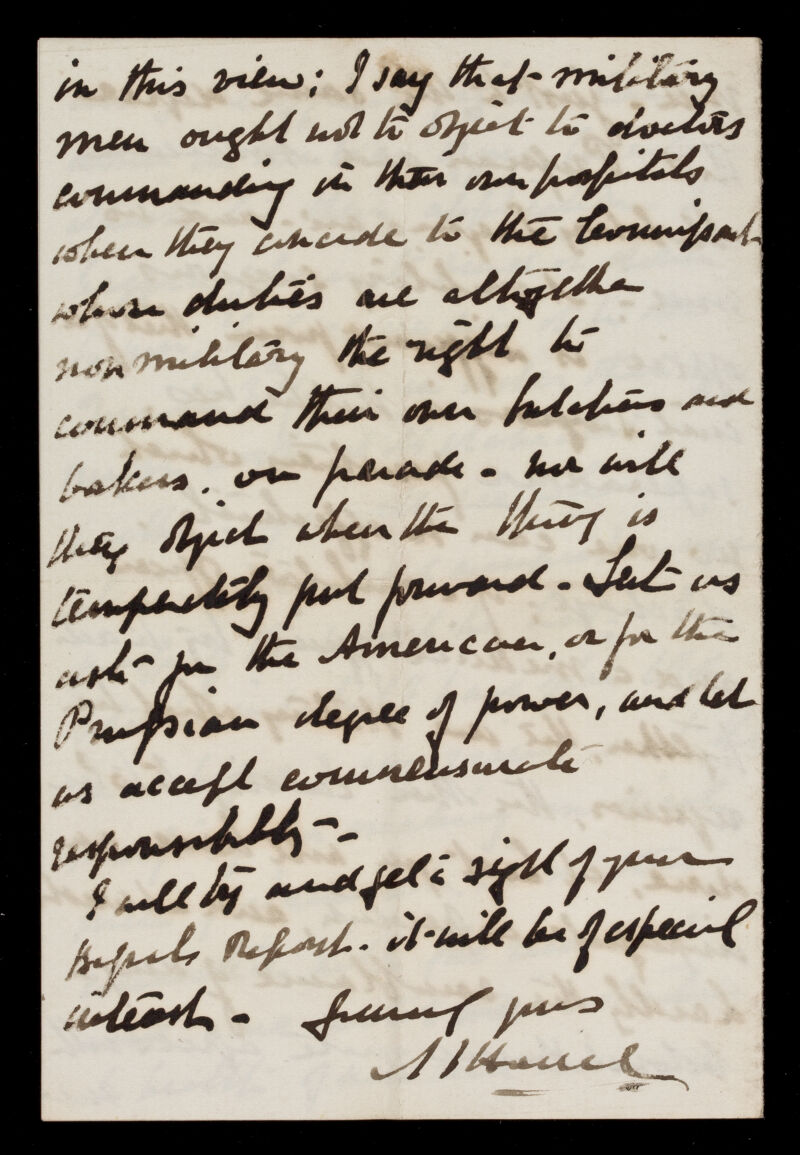 in this view; I say that military
men ought not to object to doctors
commanding in their own hospitals
when they concede to the Commissariat
whose duties are altogether
non military the right to
command their own butchers and
bakers. on parade - nor will
they object when the thing is
temperately put forward - Let us
ask for the American, or for the
Prussian degree of power, and let
us accept commensurate
responsibility -
I will try and get a sight of your
Report - it will be of especial
interest - yours